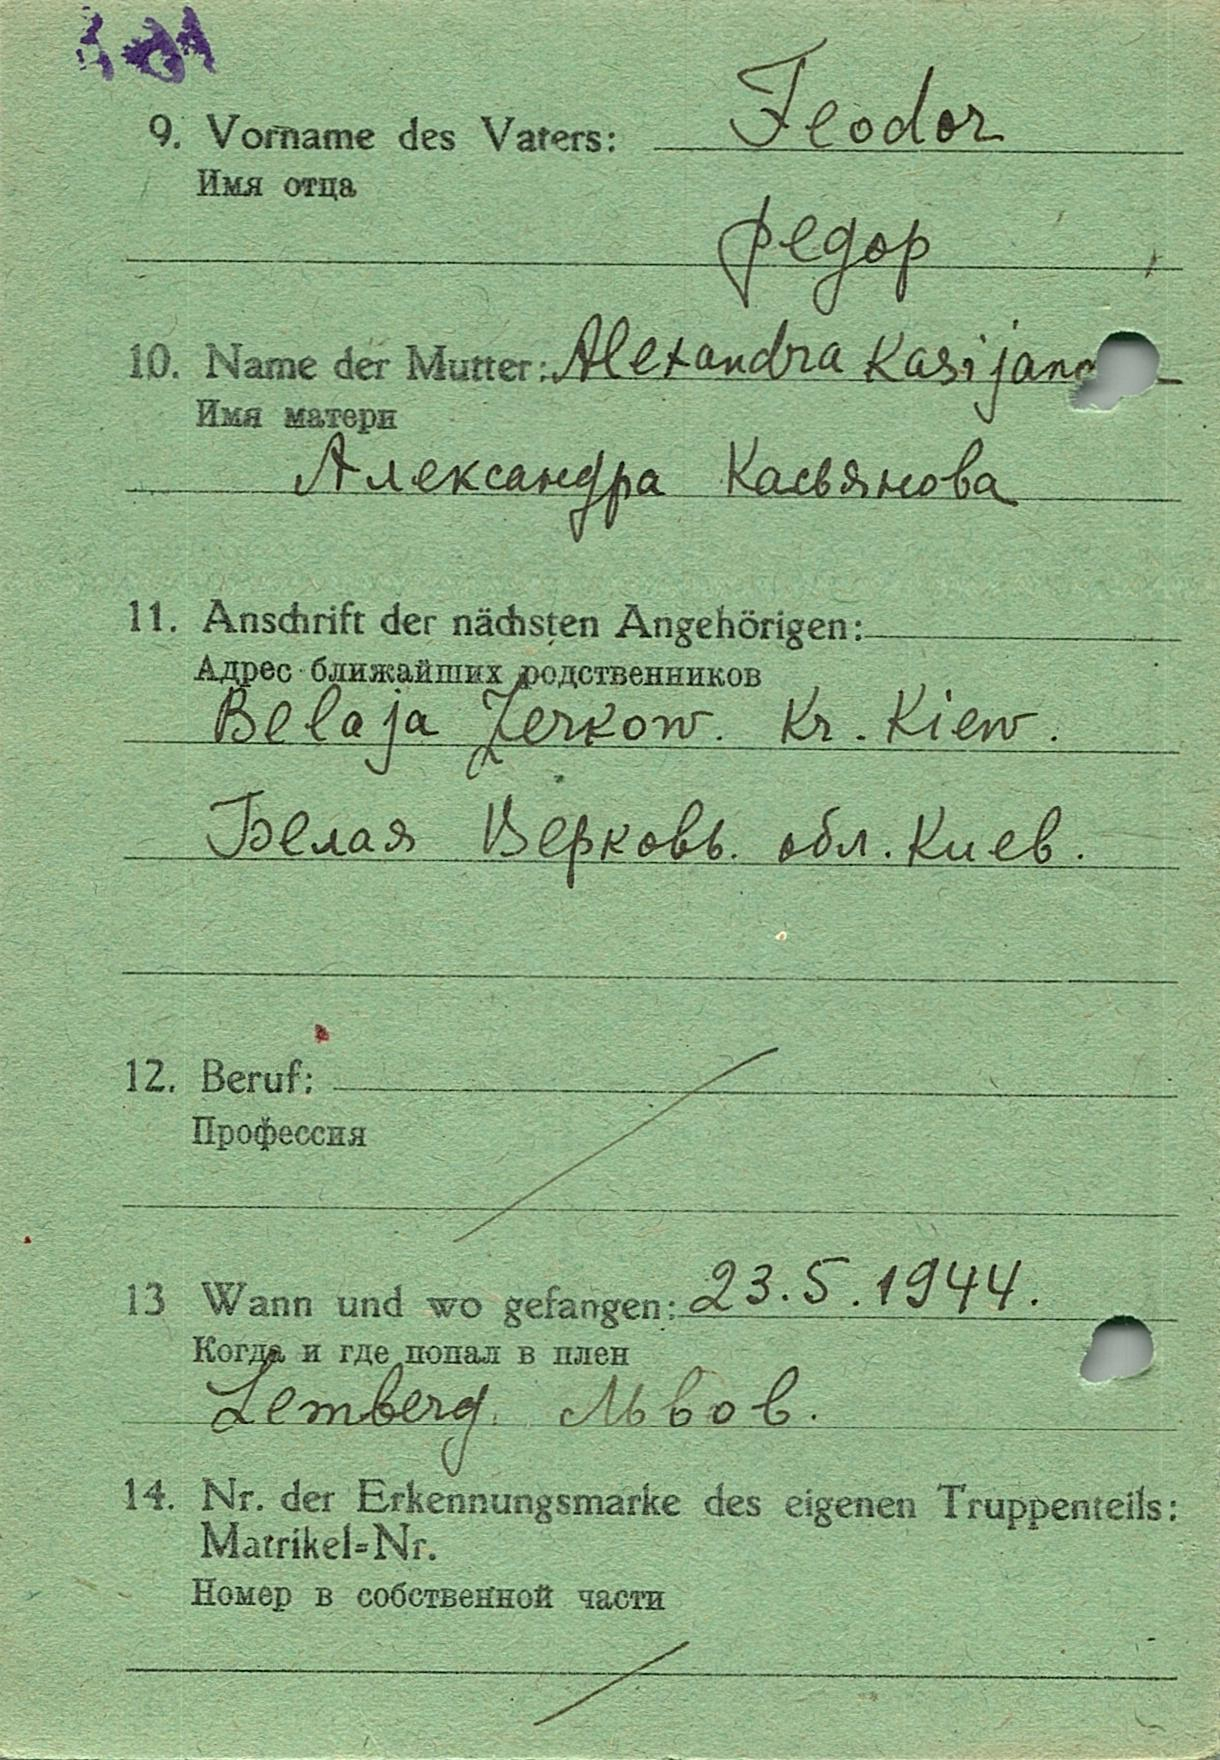 9. Vorname des Vaters: Feodor
Имя отца
Федор
10. Name der Mutter: Alexandra
Имя матери
Александра Касьянова
11. Anschrift der nächsten Angehörigen:
Адрес ближайших родственников
Belaja Zerkow. Kr. Kiew.
Белая Церковь. обл. Киев.
12. Beruf:
Профессия
13 Wann und wo gefangen: 23.5.1944.
Когда и где попал в плен
Lemberg. Львов.
14. Nr. der Erkennungsmarke des eigenen Truppenteils:
Matrikel=Nr.
Номер в собственной части